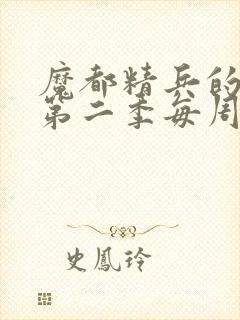 魔都精兵的
第二季每周
史鳳玲